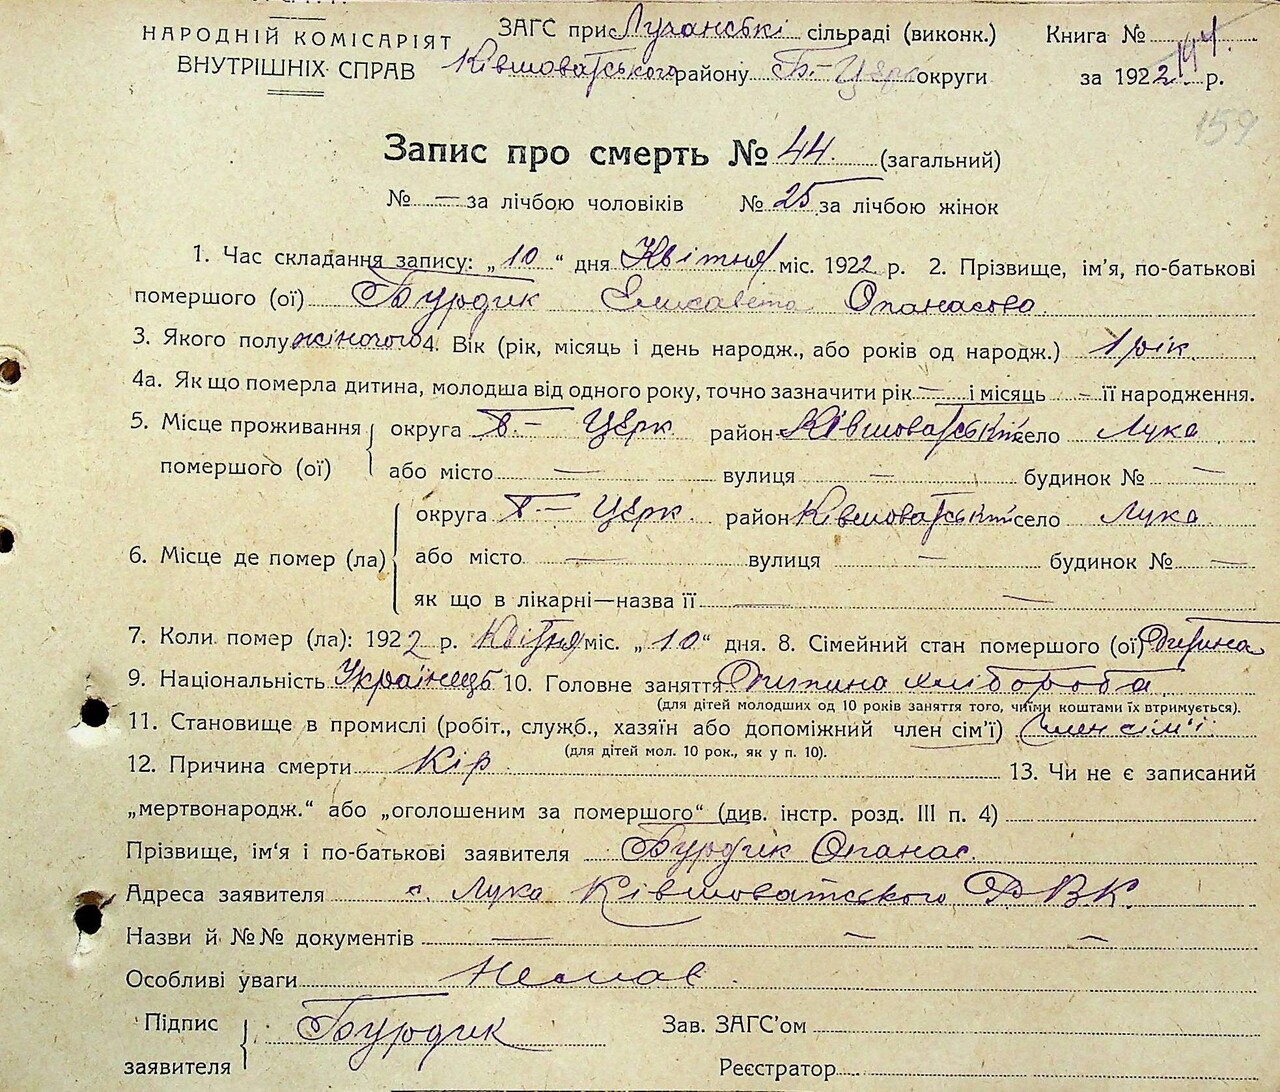 НАРОДНІЙ КОМІСАРІЯТ
ВНУТРІШНІХ СПРАВ
ЗАГС при Лучанські сільраді (виконк.) Книга №
Ківшоватського району Б.-Церк округи за 1922 р.
159
Запис про смерть № 44 (загальний)
№ — за лічбою чоловіків № 25 за лічбою жінок
1. Час складання запису: „10“ дня Квітня міс. 1922 р. 2. Прізвище, ім'я, по-батькові
помершого (ої) Бурдик Елисавета Опанасова
3. Якого полу жіночого 4. Вік (рік, місяць і день народж., або років од народж.) 1 рік
4а. Як що померла дитина, молодша від одного року, точно зазначити рік — і місяць — її народження.
5. Місце проживання помершого (ої) округа Б.- Церк район Ківшоватський село Лука
або місто — вулиця — будинок № —
6. Місце де помер (ла) округа Б.- Церк район Ківшоватський село Лука
або місто — вулиця — будинок № —
як що в лікарні—назва її — —
7. Коли помер (ла): 1922 р. Квітня міс. „10“ дня. 8. Сімейний стан помершого (ої) Дитина
9. Національність Українець 10. Головне заняття Дитина хлібороба
(для дітей молодших од 10 років заняття того, чиїми коштами їх втримується).
11. Становище в промислі (робіт., служб., хазяїн або допоміжний член сім'ї) Член сім'ї
(для дітей мол. 10 рок., як у п. 10).
12. Причина смерти Кір 13. Чи не є записаний
„мертвонародж.“ або „оголошеним за помершого“ (див. інстр. розд. III п. 4)
Прізвище, ім'я і по-батькові заявителя Бурдик Опанас
Адреса заявителя с. Лука Ківшоватського Р.В.К.
Назви й №№ документів — — —
Особливі уваги Немає
Підпис заявителя Бурдик Зав. ЗАГС'ом
Реєстратор